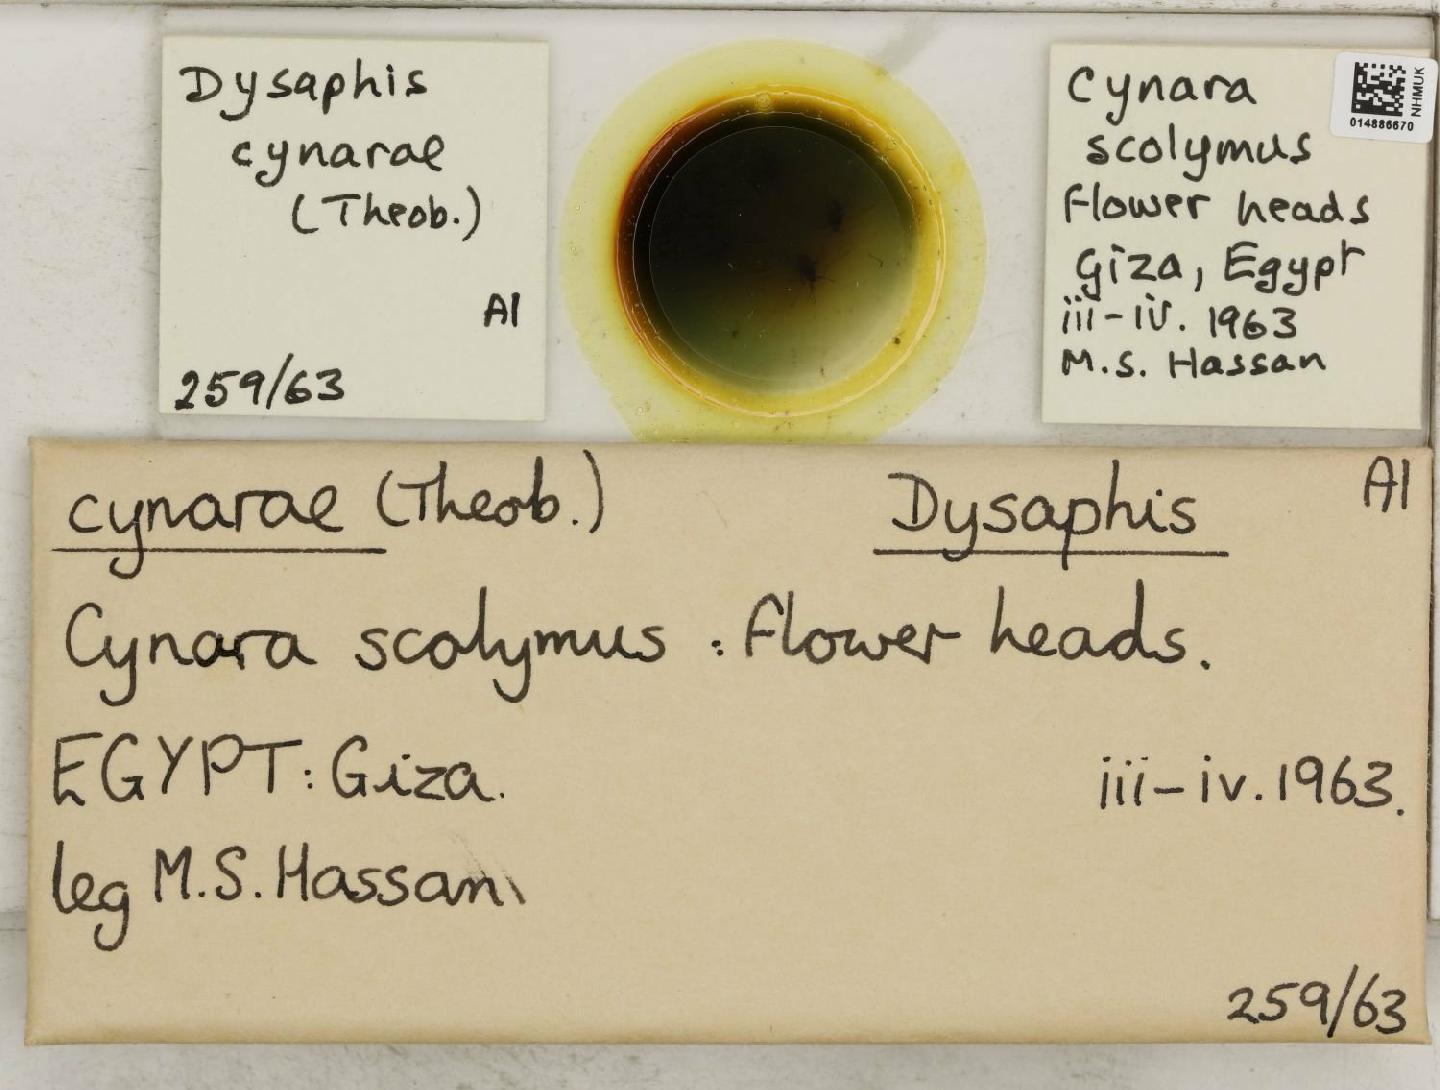 Dysaphis
cynarae
(Theob.)
Al
259/63
Cynara
scolymus
flower heads
Giza, Egypt
iii-iv. 1963
M.S. Hassan
NHMUK
014886670
cynarae (Theob.) Dysaphis Al
Cynara scolymus : flower heads.
EGYPT: Giza. iii-iv. 1963.
leg M.S. Hassan
259/63